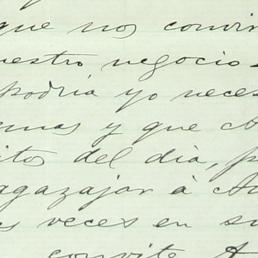 que nos convin
uestro negocio
podria yo neces
emas y que A
itos del dia, p
agazajar á Au
s veces en su
convite A